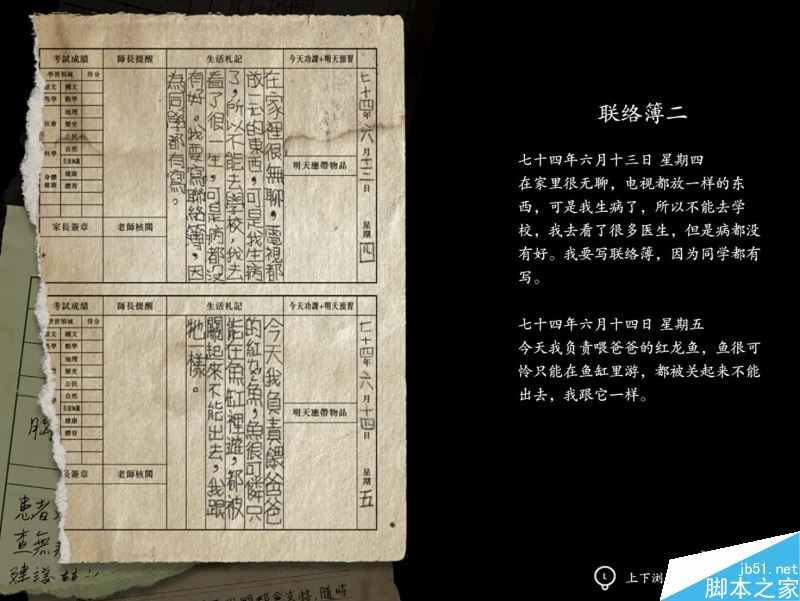 考試成績 師長提醒 生活札記 今天功課+明天預習
學習領域 得分
語文 國文
數學 數學
社會 地理
歷史
公民
科學 自然
生活知識
身體健康 健康
體育
家長簽章 老師核閱
明天應帶物品
七十四年六月十三日 星期四
在家裡很無聊，電視都
放一的東西，可是我生病
了，所以不能去學校，我去
看了很一生，可是病都沒
有好。我要寫聯絡簿，因
為同學都有寫。
考試成績 師長提醒 生活札記 今天功課+明天預習
學習領域 得分
語文 國文
數學 數學
地理
社會 歷史
公民
科學 自然
生活知識
身體健康 健康
體育
長簽章 老師核閱
明天應帶物品
七十四年六月十四日 星期五
今天我負責餵爸爸
的紅龙魚，魚很可憐只
能在魚缸裡遊，都被
關起來不能出去，我跟
牠一樣。
胸
患者
查無
建議
支持,隨時
联络簿二
七十四年六月十三日 星期四
在家里很无聊，电视都放一样的东
西，可是我生病了，所以不能去学
校，我去看了很多医生，但是病都没
有好。我要写联络簿，因为同学都有
写。
七十四年六月十四日 星期五
今天我负责喂爸爸的红龙鱼，鱼很可
怜只能在鱼缸里游，都被关起来不能
出去，我跟它一样。
L 上下浏
jb51.net
脚本之家